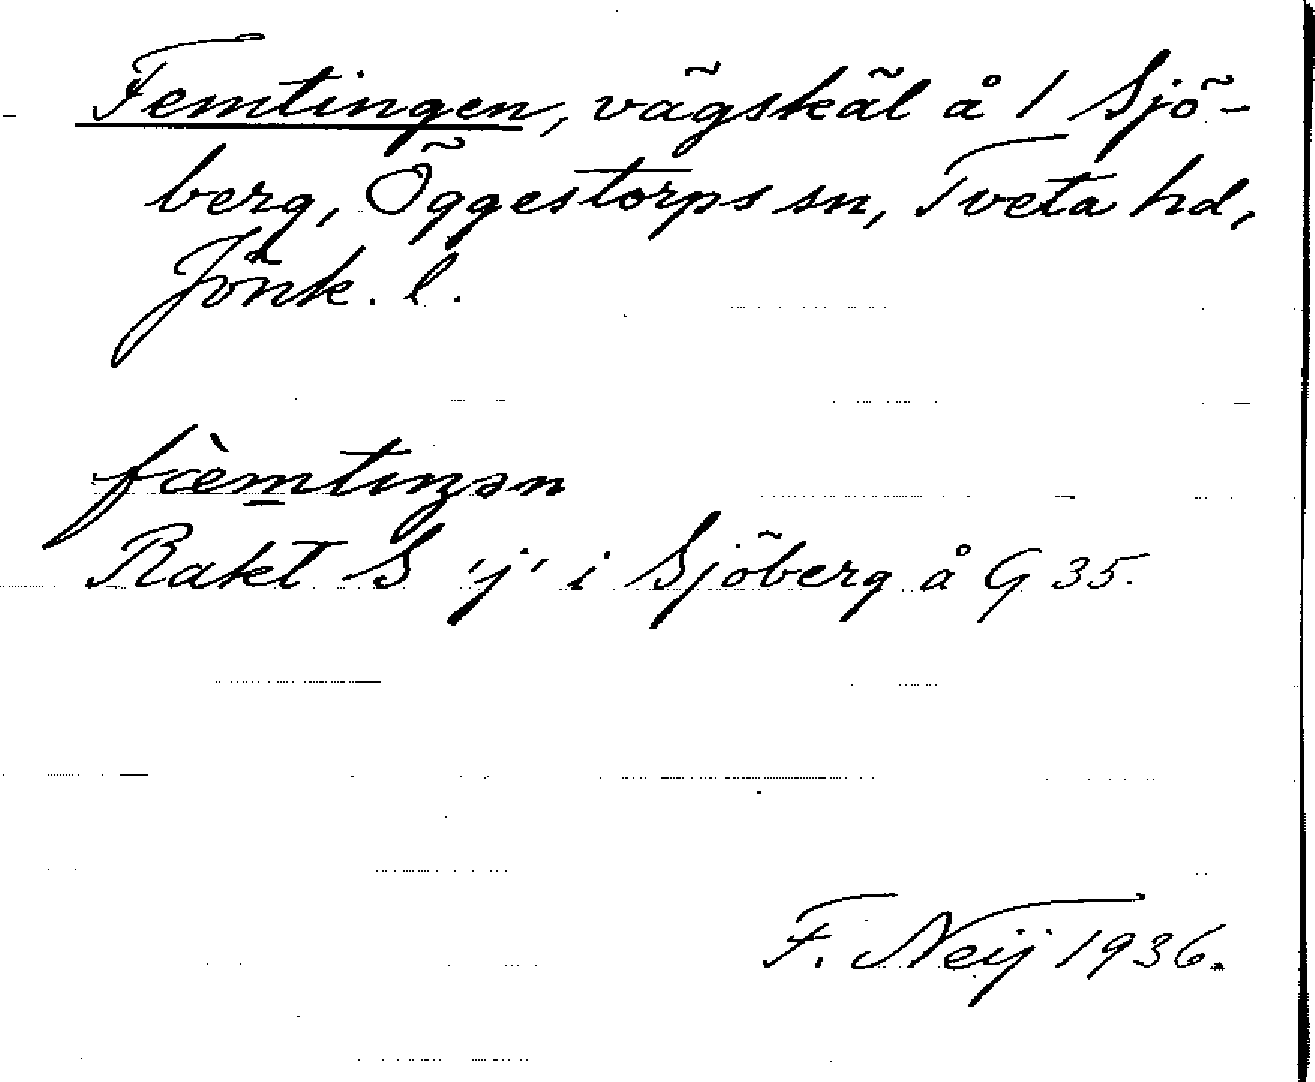 Femtingen, vägskäl å 1 Sjö-
berg, Öggestorps sn, Tveta hd,
Jönk. l.
fæ̀mtıŋən
Rakt S 'j' i Sjöberg å G 35.
F. Neij 1936.